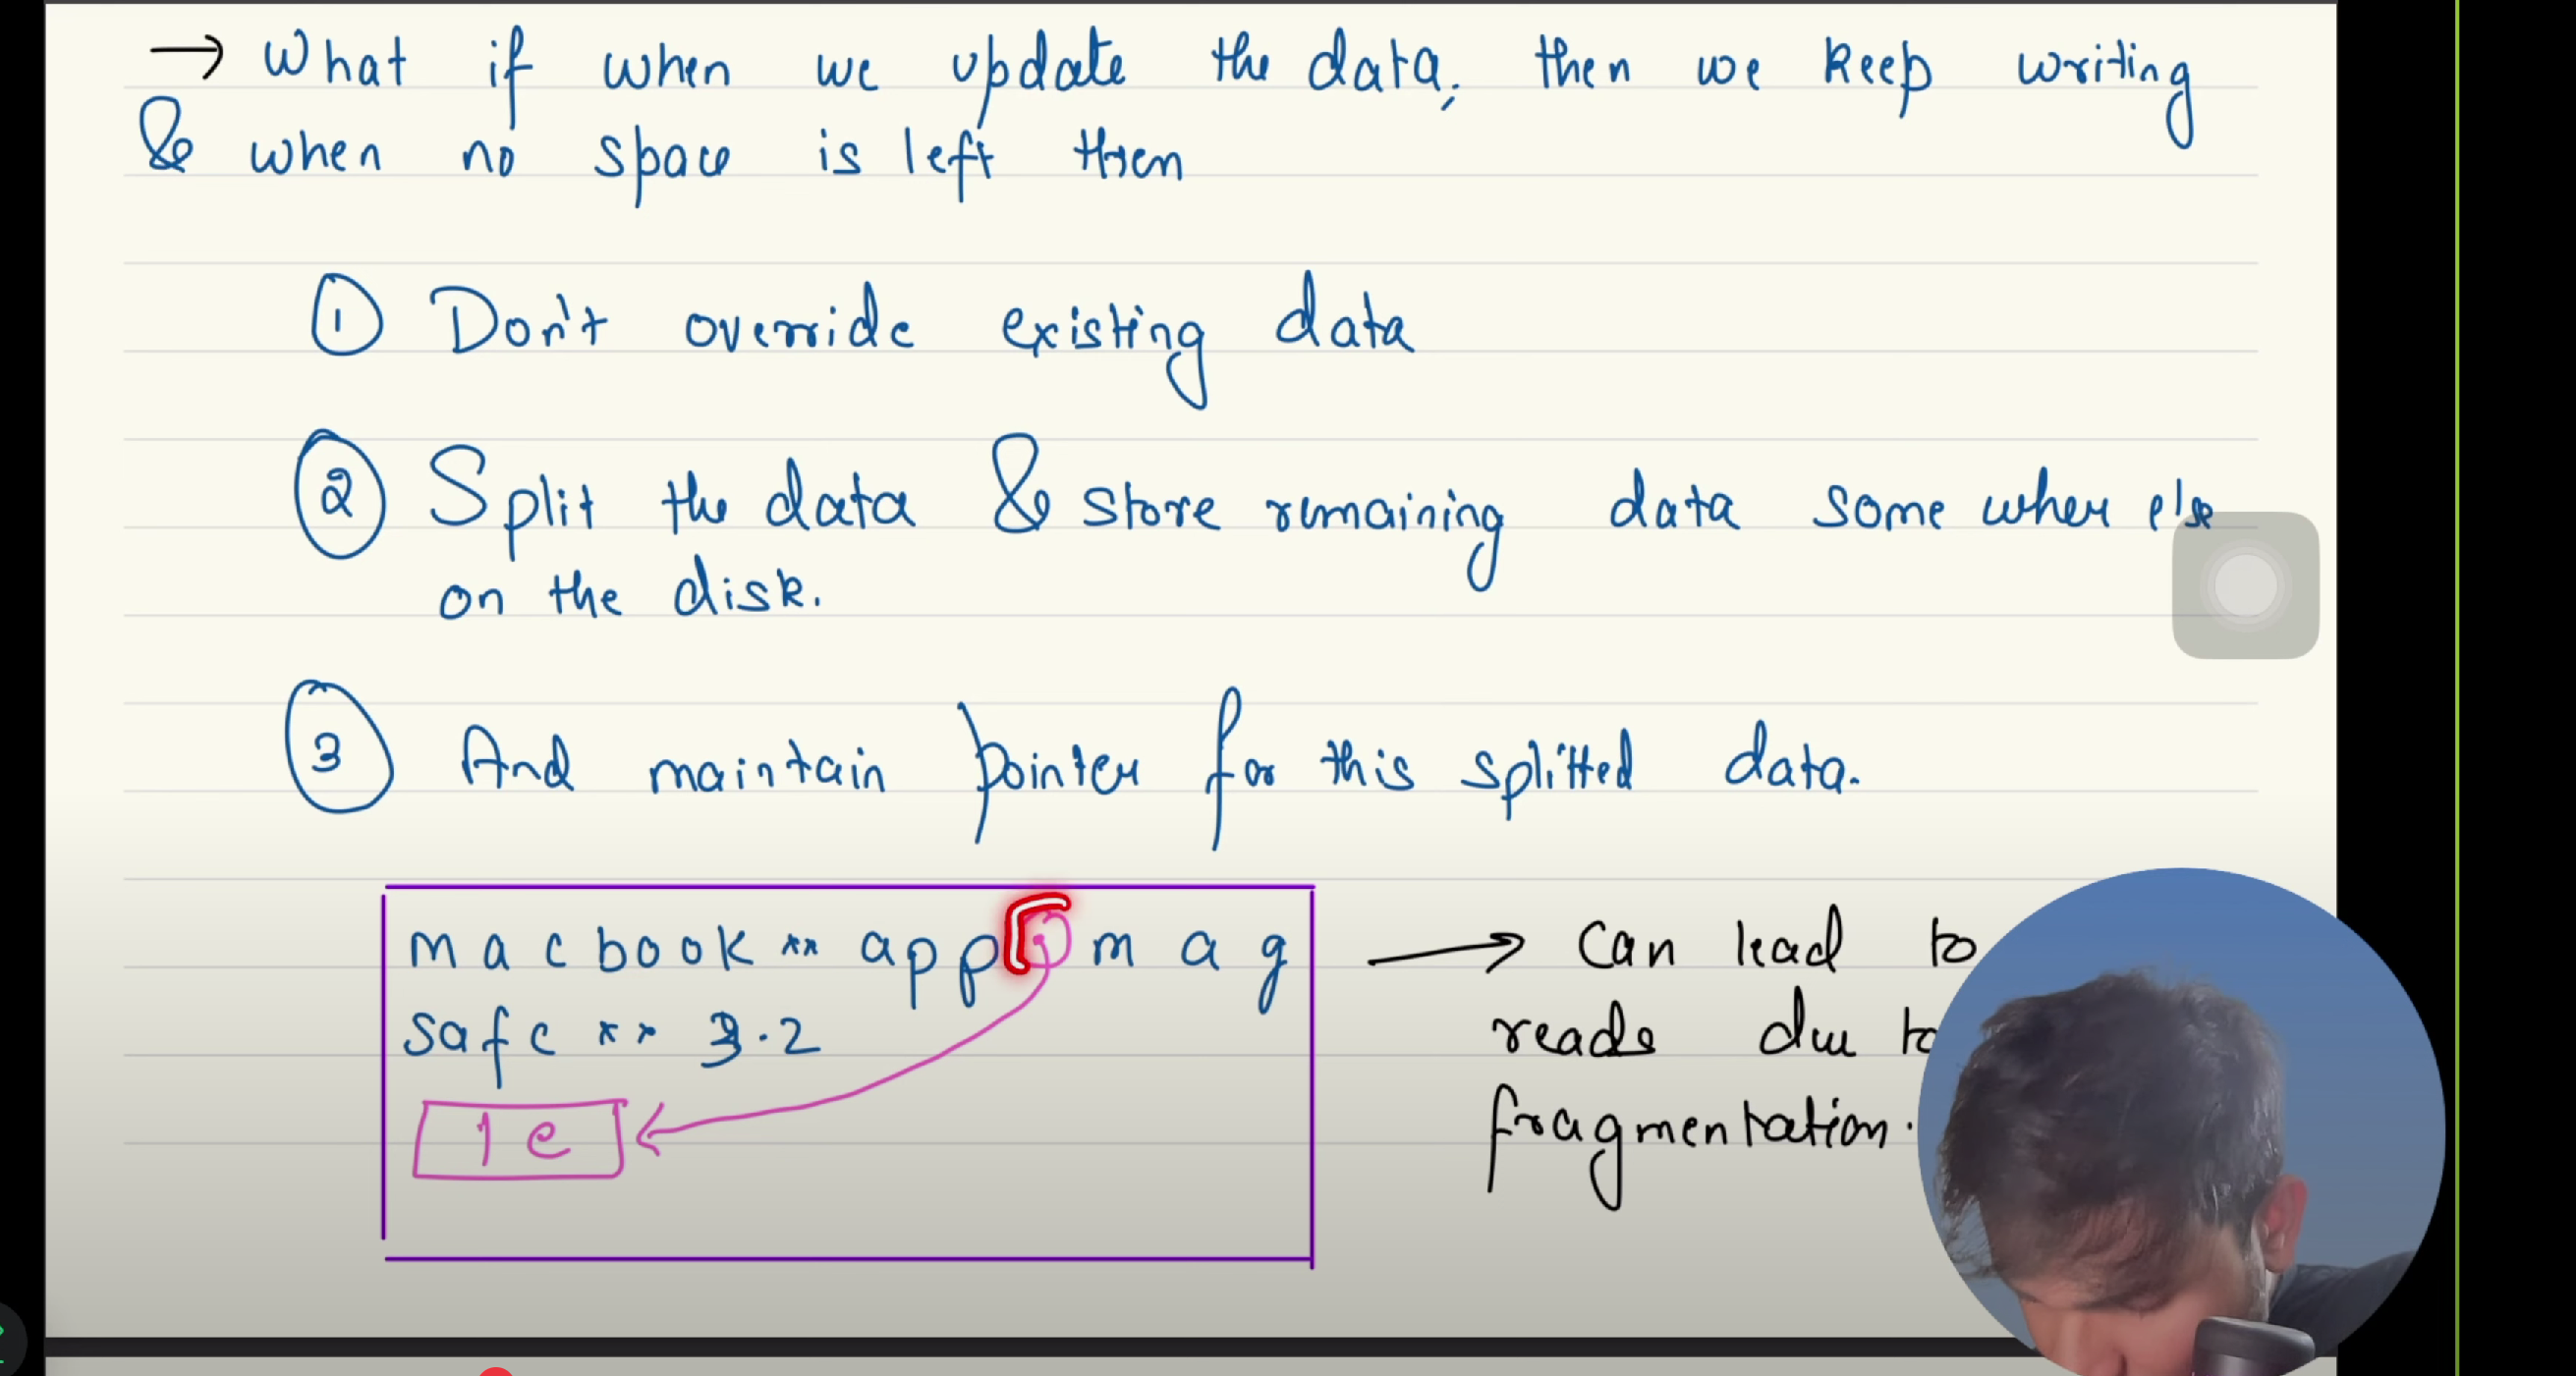 → What if when we update the data, then we keep writing
& when no space is left then
① Don't override existing data
② Split the data & store remaining data some where else
on the disk.
③ And maintain pointer for this splitted data.
macbook ** app mag
safe ** 3.2
le
→ Can lead to
reads due to
fragmentation.